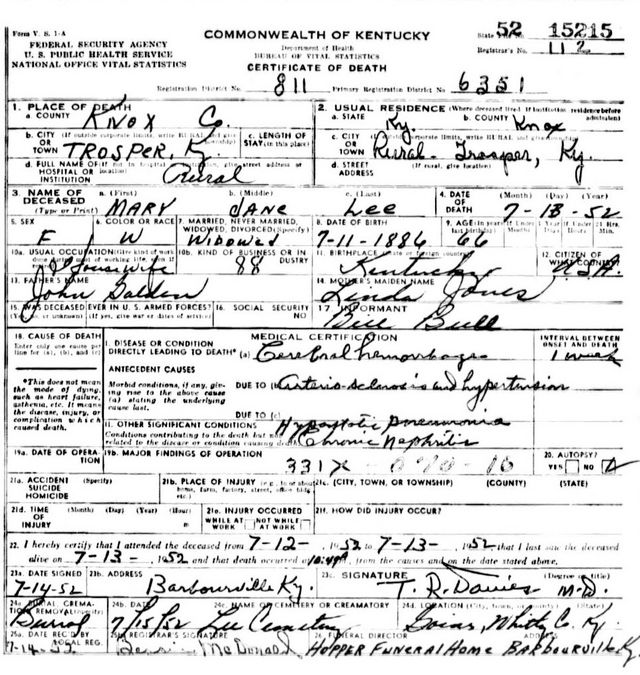 Form V. S. 1-A
COMMONWEALTH OF KENTUCKY
State 52 15215
FEDERAL SECURITY AGENCY
U. S. PUBLIC HEALTH SERVICE
NATIONAL OFFICE VITAL STATISTICS
Department of Health
BUREAU OF VITAL STATISTICS
CERTIFICATE OF DEATH
Registrar's No. 112
Registration District No. 811 Primary Registration District No. 6351
1. PLACE OF DEATH
a. COUNTY KNOX Co.
2. USUAL RESIDENCE (Where deceased lived. If institution: residence before admission)
a. STATE Ky. b. COUNTY Knox
b. CITY (If outside corporate limits, write RURAL and give
OR TOWN TROSPER,
c. LENGTH OF STAY (in this place)
c. CITY
OR TOWN Rural- Trosper, Ky.
d. FULL NAME OF (If not in hospital
HOSPITAL OR INSTITUTION Rural
d. STREET ADDRESS (If rural, give location)
3. NAME OF DECEASED (Type or Print)
a. (First) MARY b. (Middle) JANE c. (Last) Lee
4. DATE OF DEATH (Month) (Day) (Year) 7-13-52
5. SEX F
6. COLOR OR RACE W
7. MARRIED, NEVER MARRIED, WIDOWED, DIVORCED (Specify) WIDOWED
8. DATE OF BIRTH 7-11-1886
9. AGE (In years last birthday) 66
10a. USUAL OCCUPATION Housewife
10b. KIND OF BUSINESS OR INDUSTRY 88
11. BIRTHPLACE (State or foreign country) Kentucky
12. CITIZEN OF WHAT COUNTRY? USA.
13. FATHER'S NAME John
14. MOTHER'S MAIDEN NAME Linda Jones
15. WAS DECEASED EVER IN U. S. ARMED FORCES?
(If yes, give war or dates of service)
16. SOCIAL SECURITY NO.
17 INFORMANT Bill Bull
18. CAUSE OF DEATH
Enter only one cause per line for (a), (b), and (c)
MEDICAL CERTIFICATION
INTERVAL BETWEEN ONSET AND DEATH
I. DISEASE OR CONDITION DIRECTLY LEADING TO DEATH* (a) Cerebral hemorrhage 1 week
*This does not mean the mode of dying, such as heart failure, asthenia, etc. It means the disease, injury, or complication which caused death.
ANTECEDENT CAUSES
Morbid conditions, if any, giving rise to the above cause (a) stating the underlying cause last.
DUE TO (b) arterio-sclerosis and hypertension
DUE TO (c)
II. OTHER SIGNIFICANT CONDITIONS Hypostatic pneumonia
Conditions contributing to the death but not related to the disease or condition causing death. Chronic Nephritis
19a. DATE OF OPERATION
19b. MAJOR FINDINGS OF OPERATION
331X
20. AUTOPSY?
YES NO
21a. ACCIDENT SUICIDE HOMICIDE (Specify)
21b. PLACE OF INJURY (e.g., in or about home, farm, factory, street, office bldg., etc.)
21c. (CITY, TOWN, OR TOWNSHIP) (COUNTY) (STATE)
21d. TIME OF INJURY (Month) (Day) (Year) (Hour) m
21e. INJURY OCCURRED
WHILE AT WORK NOT WHILE AT WORK
21f. HOW DID INJURY OCCUR?
22. I hereby certify that I attended the deceased from 7-12-, 1952 to 7-13-, 1952 that I last saw the deceased
alive on 7-13-, 1952 and that death occurred at m., from the causes and on the date stated above.
DATE SIGNED 7-14-52
ADDRESS Barbourville Ky.
23c. SIGNATURE T. R. Davies M.D. (Degree or title)
24a. BURIAL, CREMATION, REMOVAL (Specify) Burial
24b. DATE 7/15/52
24c. NAME OF CEMETERY OR CREMATORY Lee Cemetery
24d. LOCATION (City, town, or county) (State) Whitly Co. Ky.
25a. DATE REC'D BY LOCAL REG. 7-14-52
25b. REGISTRAR'S SIGNATURE McDonald
26. FUNERAL DIRECTOR ADDRESS
HOPPER FUNERAL HOME BARBOURVILLE Ky.